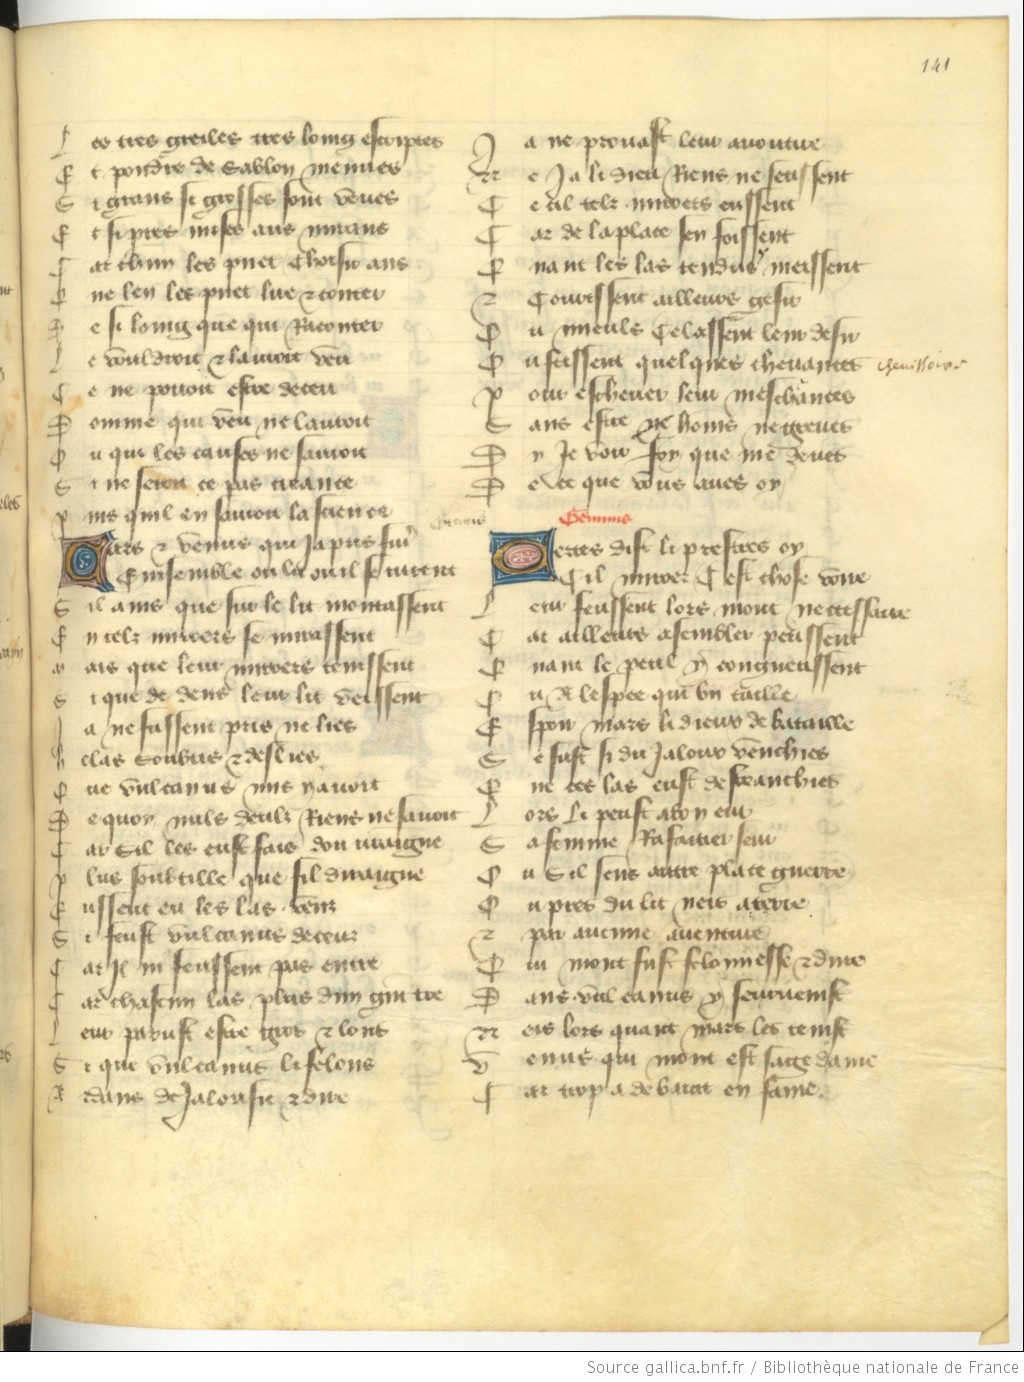 141
L es tres greiles tres loing escriptes
E t pondre de Sablon menues
S i grans si grosses sont veues
E t si pres mises aus mirans
C ar chun les puet choisir ans
Q ue len les puet lire et conter
D e si loing que qui Raconter
L e vouldroit et lauroit veu
C e ne pouoit estre deceu
D omme qui veu ne lauroit
O u qui les causes ne sauroit
S i ne seroit ce pas creance
P uis quil en sauroit la science
Mars et venus qui ja pris fur
Ensemble ou lit ou il se jurent
S il ains que sur le lit montassent
E n telz mirers se mirassent
M ais que leur mirers tenissent
S i que dedens leur lit veissent
J a ne fussent pris ne lies
E s las soubtis et deslies
Q ue vulcanus mis y auoit
D e quoy nuls deulz Riens ne sauoit
C ar Sil les eust fais dou uraigne
P lus soubtille que fil diraigne
E ussent eu les las veuz
S i feust vulcanus deceuz
C ar Il ni feussent pas entre
C ar chascun las plus dun gin tre
L eur parust estre gros et lons
S i que vulcanus li felons
A rdans de Jalousie et dire
J a ne prouast leur auoutire
N e Ja li dieu Riens ne seussent
C e cil telz mirers eussent
C ar de la place sen foissent
E nant les las tendus y meissent
Et Courissent ailleurs gesir
O u mieuls Celassent leur desir
O u feissent quelques cheuances
cheuissances
P our escheuer leur meschances
S ans estre ne honis ne greues
D y Je voir foy que me deues
D e ce que vous aues oy
Genius
Genius
Certes dist li prestres oy
Cil mirer Cest chose voire
L eur feussent lors mont necessaire
C ar ailleurs asembler peussent
E nant le peril y congneussent
O u A lespee qui bn taille
E spoir mars li dieux de bataille
S e fust si du Jaloux venchies
Q ue ces las eust despeanchies
L ors li peust a bon eur
S a femme Rafaitier seur
O u Sil sens autre place querre
O u pres du lit neis a terre
Et par aucune auenture
Q ui mont fust felonnesse et dure
D ans vulcanus y seuruenist
N eis lors quant mars les tenist
V enus qui mont est sage dame
C ar trop a de barat en fame
Source gallica.bnf.fr / Bibliothèque nationale de France